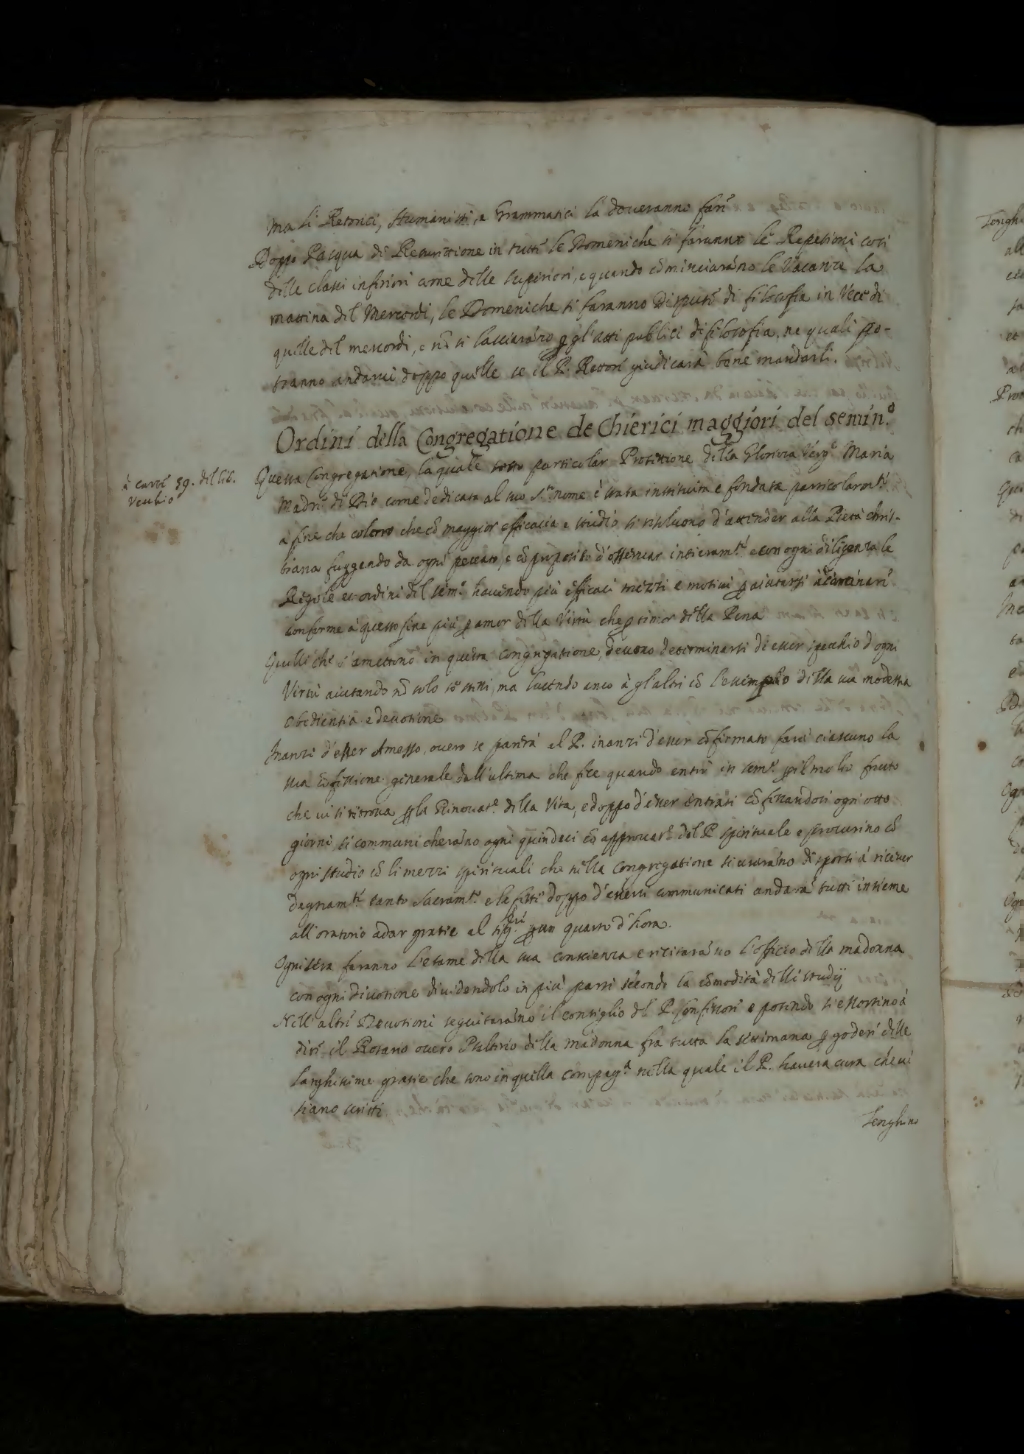 ma li Retorici, Humanisti, e Grammatici la doveranno fare
Doppo Pacqua di Resurettione in tutte le Domeniche si faranno le Repetioni così
delle classi inferiori come delle superiori, e quando cōminciarāno le Vacanze la
matina del Mercordi, le Domeniche si faranno Dispute di filosofia in Vece di
quelle del mercordi, e nō si lasciarāno p gl'atti publici di filosofia, ne quali po-
tranno andarui doppo quelle se il P. Rettore giudicarà bene mandarli.
Ordini della Congregatione de Chierici maggiori del semin.º
à carte 89. del lib.
Vechio
Questa Congregatione, la quale sotto particolar Protettione della Gloriosa Verg.e Maria
Madre di Dio come dedicata al suo S.to nome è stata instituita e fondata particolarm.te
a fine che coloro che cō maggior eficacia e studio si risoluono d'attender alla Pietà chris-
tiana fuggendo da ogni peccato, e cō proposito d'osservar intieram.te e con ogni diligenza le
Regole et ordini del sem.o havendo più efficaci mezzi e motivi p aiutarsi à caminare
conforme à questo fine più p amor della Virtù che p timor della Pena
Quelli che s'ametteno in questa Congregatione, deuono determinarsi di esser spechio d'ogni
Virtù aiutando nō solo se stessi, ma lucendo anco à gl'altri cō l'essempio della sua modestia
obedientia e deuotione
Inanzi d'esser Amesso, ouero se parerà al P. inanzi d'esser cōfirmato farà ciascuno la
sua cōfessione generale dall'ultima che fece quando entrò in sem.o p il molto frutto
che ui si ritroua p la Rinouat.e della Vita, e doppo d'esser entrati cōfessandosi ogni otto
giorni si communicherāno ogni quindeci cō approuat.e del P. spirituale e procurino cō
ogni studio cō li mezzi spirituali che nella Congregatione si usarāno disporsi à riceuer
degnam.te santo Sacram.to e le feste doppo d'essersi communicati andarā tutti insieme
all'oratorio a dar gratie al Sig.re p un quarto d'hora.
Ogni sera faranno l'esame della sua conscienza e recitarāno l'officio della madonna
con ogni diuotione diuidendolo in più parti secondo la cōmodità delli studij
Nell'altre Deuotioni seguitarāno il consiglio del P. Confessore e potendo si essortino à
dire il Rosario ouero Psalterio della madonna fra tutta la settimana p godere delle
larghissime gratie che sono in quella compag.a nella quale il P. hauerà cura che ui
siano scritti